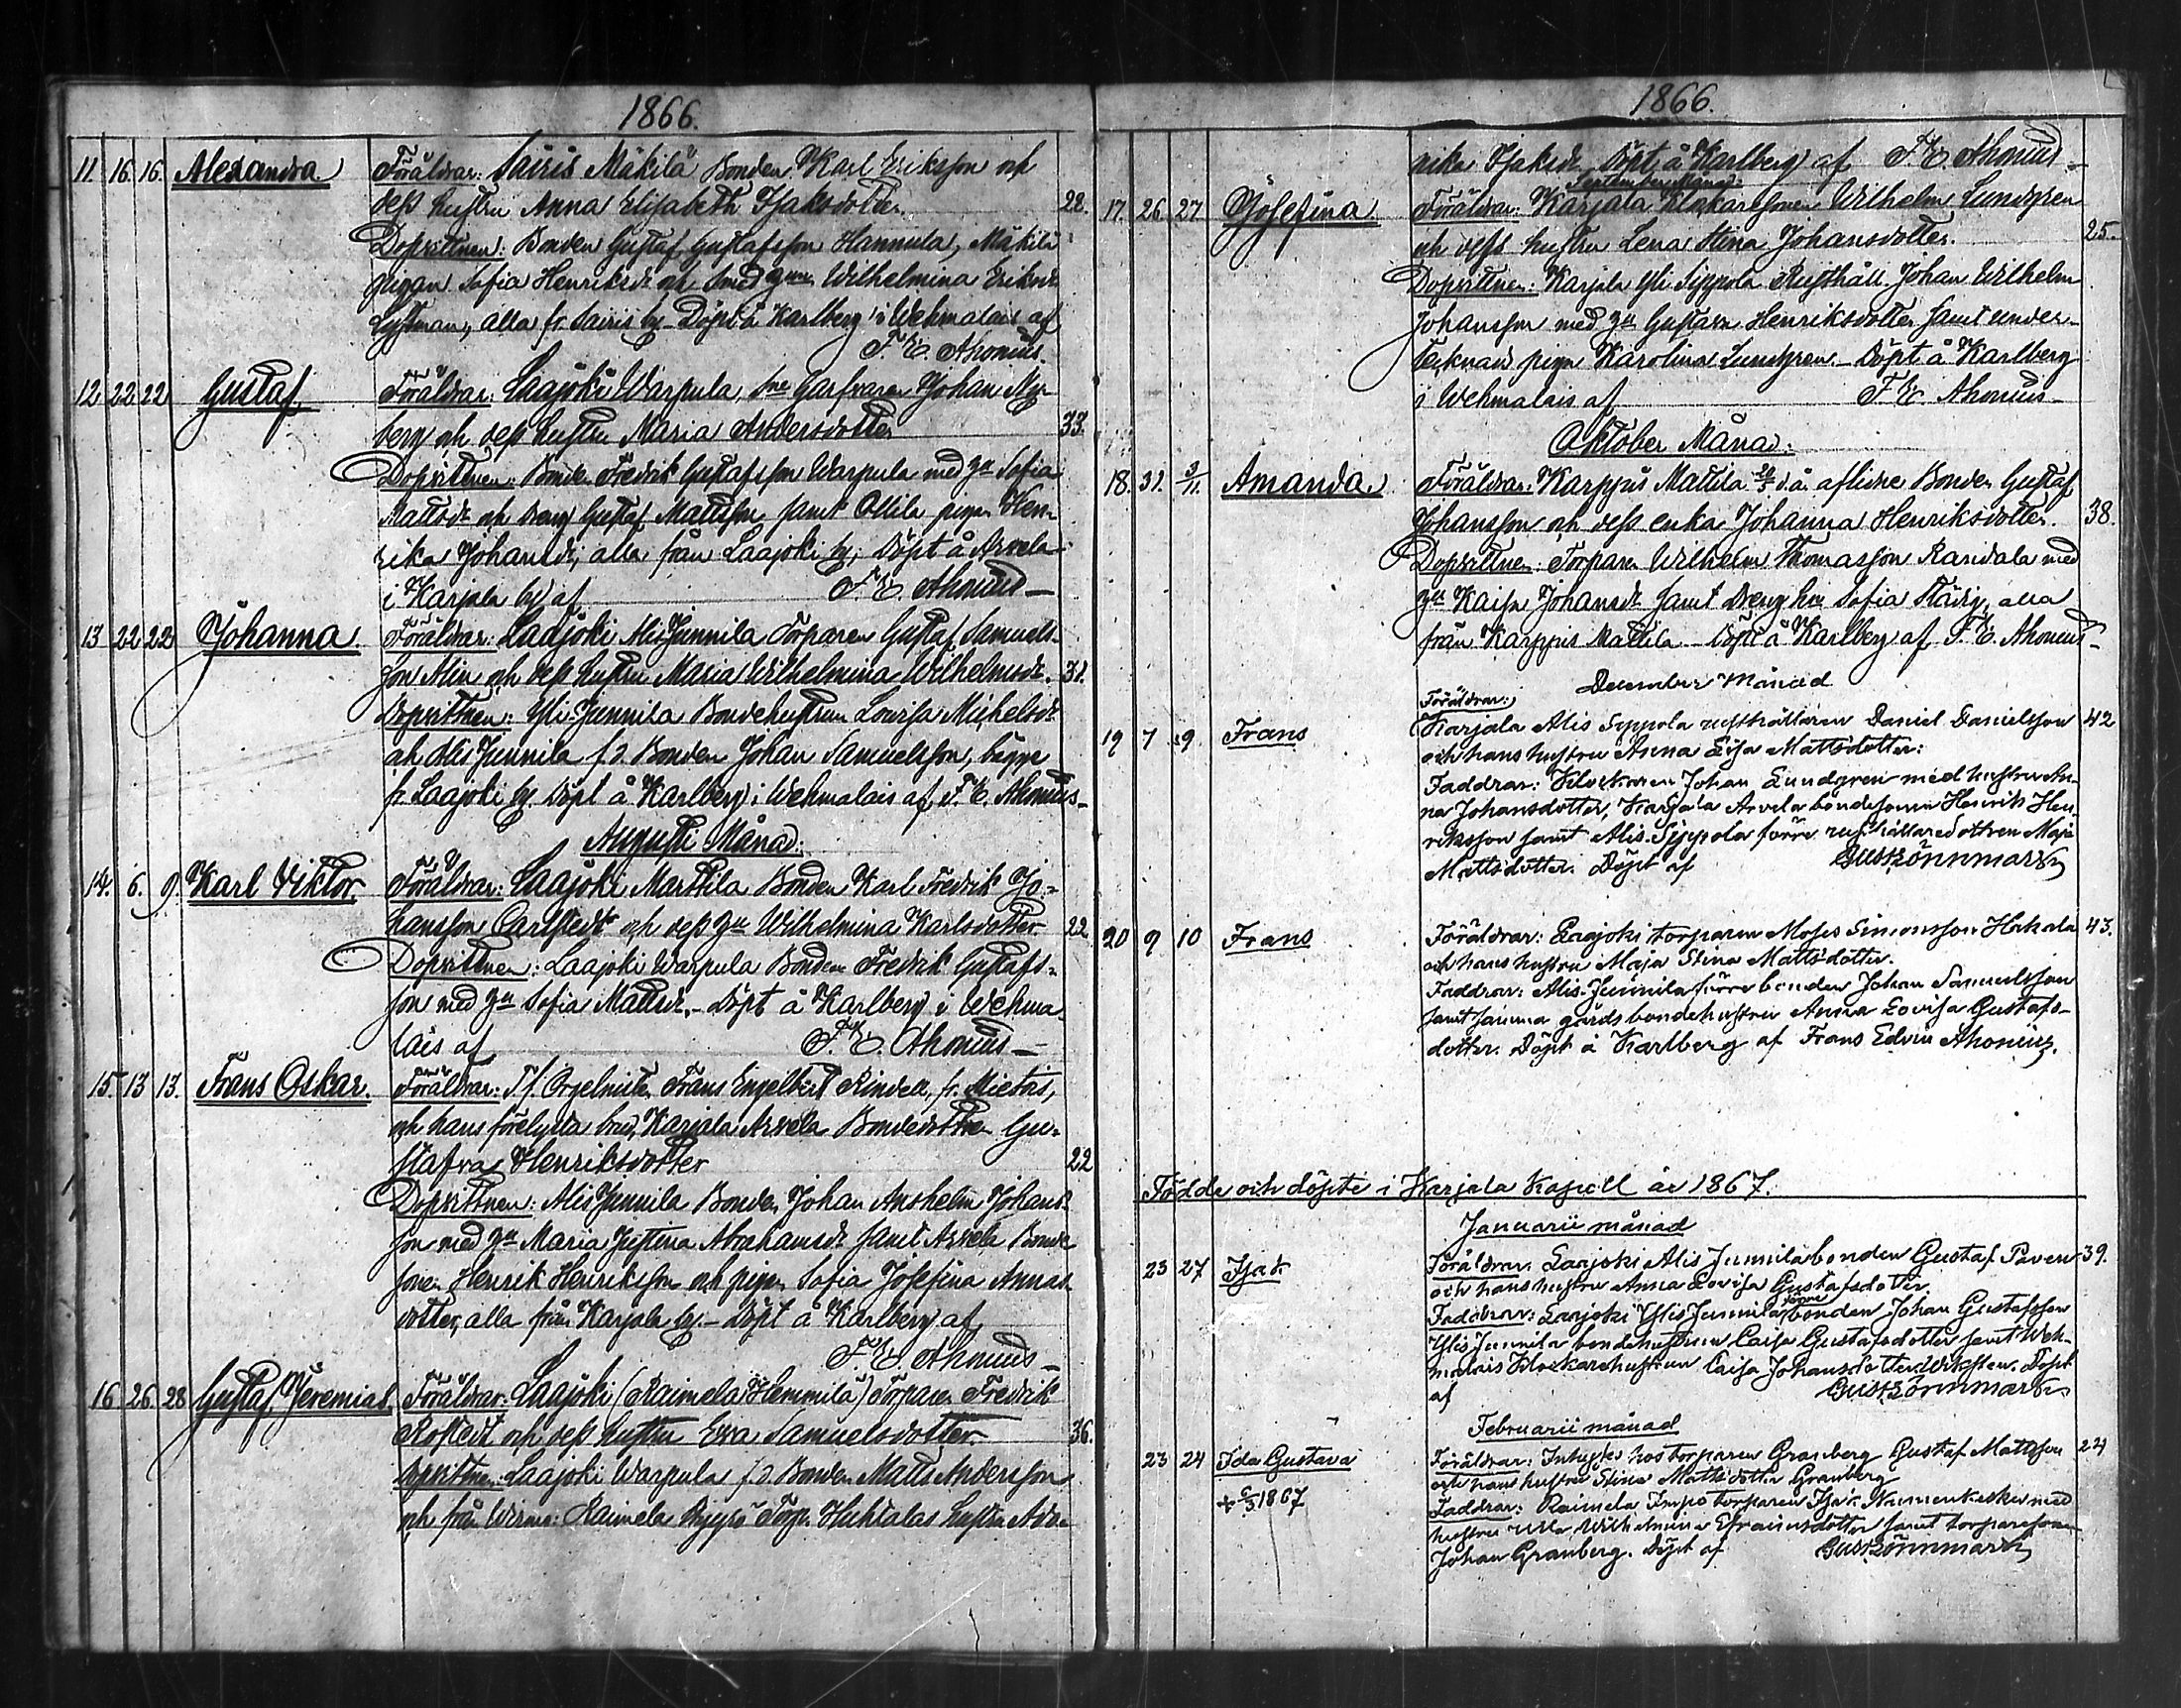 1866.
11. 16. 16. Alexandra Föräldrar: Sairis Mäkilä Bonden Karl Eriksson och
dess hustru Anna Elisabeth Isaksdotter. 28.
Dopvittnen: Bonden Gustaf Gustafsson Hannula, Mäkilä
pigan Sofia Henriksdr och Smed Wilhelmina Eriksdr
alla fr. Sairis by. Döpt å Karlberg i Wehmalais af
F. E. Ahonius.
12 22 22 Gustaf Föräldrar: Laajoki Warpula, Garfvaren Johan
berg och dess hustru Maria Andersdotter 33.
Dopvittnen: Bonden Fredrik Gustafsson Warpula med hu Sofia
Mattsdr och dreng Gustaf Mattsson samt Ollila pigan Hen-
rika Johansdr, alla från Laajoki by, Döpt å Arvela
i Karjala by af F. E. Ahonius
13 22 22 Johanna. Föräldrar: Laajoki Alis-Junnila Torparen Gustaf Samuels-
son Alin och dess hustru Maria Wilhelmina Wilhelmsdr. 31.
Dopvittnen: Yli-Junnila Bondehustrun Lowisa Michelsdr
och Alis Junnila f.d. Bonden Johan Samuelsson, bägge
fr. Laajoki by. Döpt å Karlberg i Wehmalais af F. E. Ahonius
Augusti Månad:
14. 6. 9. Karl Viktor. Föräldrar: Laajoki Marttila Bonden Karl Fredrik Jo-
hansson Carlstedt och dess hu Wilhelmina Karlsdotter 22
Dopvittnen: Laajoki Warpula Bonden Fredrik Gustafs-
son med hu Sofia Mattsdr. Döpt å Karlberg i Wehma-
lais af F. E. Ahonius
15. 13 13. Frans Oskar. Föräldrar: T.f. Orgelnisten Frans Engelbert Rindell, fr. Mietois,
och hans förelysta brud, Karjala Arvela Bondedotter Gu-
stafva Henriksdotter 22
Dopvittnen: Alis Junnila Bonden Johan Anshelm Johans-
son med hu Maria Justina Abrahamsdr samt Arvela Bonde
sonen Henrik Henriksson och pigan Sofia Josefina Annas-
dotter, alla från Karjala by. Döpt å Karlberg af
F. E. Ahonius
16 26 28 Gustaf Jeremias. Föräldrar: Laajoki (Raimela Hemmilä) Torparen Fredrik
Rostedt och dess hustru Eva Samuelsdotter. 36.
Dopvittnen: Laajoki Warpula f.d. Bonden Matts Andersson
och från Wirmo: Raimela Torp. Huhtalas hustru
1866.
nika Isaksdr. Döpt å Karlberg af F. E. Ahonius
September Månad:
17. 26 27 Josefina. Föräldrar: Karjala Klokaresonen Wilhelm Lundgren
och dess hustru Lena Stina Johansdotter. 25.
Dopvittnen: Karjala Yli Sippola Rusthåll. Johan Wilhelm
Johansson med hu Gustava Henriksdotter samt under-
tecknads pigan Karolina Lundgren. Döpt å Karlberg
i Wehmalais af F. E. Ahonius
Oktober Månad:
18. 31. 3/11. Amanda. Föräldrar: Karppis Mattila d.å. aflidne Bonden Gustaf
Johansson och dess enka Johanna Henriksdotter. 38.
Dopvittnen: Torparen Wilhelm Thomasson Rasidala med
hu Kaisa Johansdr samt Dreng hu Sofia alla
från Karppis Mattila. Döpt å Karlberg af F. E. Ahonius
December Månad
Föräldrar:
19 7 9 Frans Karjala Alis Sippola rusthållaren Daniel Danielsson 42
och hans hustru Anna Lisa Mattsdotter:
Faddrar: Klockaren Johan Lundgren med hustru An-
na Johansdotter, Karjala Arvela bondesonen Henrik Hen-
riksson samt Alis-Sippola förre rusthållaredottren Maja
Mattsdotter. Döpt af Gust Lönnmark
20 9 10 Frans Föräldrar: Laajoki torparen Moses Simonsson Hakala 43.
och hans hustru Maja Stina Mattsdotter.
Faddrar: Alis-Junnila förre bonden Johan Samuelsson
samt samma gårds bondehustru Anna Lovisa Gustafs-
dotter. Döpt å Karlberg af Frans Edvin Ahonius.
Födde och döpte i Karjala Kapell år 1867.
Januarii månad
23 27 Isak Föräldrar: Laajoki Alis Junnila bonden Gustaf 39.
och hans hustru Anna Lovisa Gustafsdotter.
Faddrar: Laajoki Ylis Junnila förre bonden Johan Gustafsson
Ylis Junnila bondehustrun Caisa Gustafsdotter samt Weh-
malais Klockarehustrun Caisa Johansdotter Wikstén. Döpt
af Gust Lönnmark
Februarii månad
23 24 Ida Gustava Föräldrar: Inhyses hos torparen Granberg Gustaf Mattsson 24
och hans hustru Stina Mattsdotter Granberg
+ 6/3 1867 Faddrar: Raimela Impo torparen Isak med
hustru Ulla Wilhelmina Efraimsdotter samt torparesonen
Johan Granberg. Döpt af Gust Lönnmark